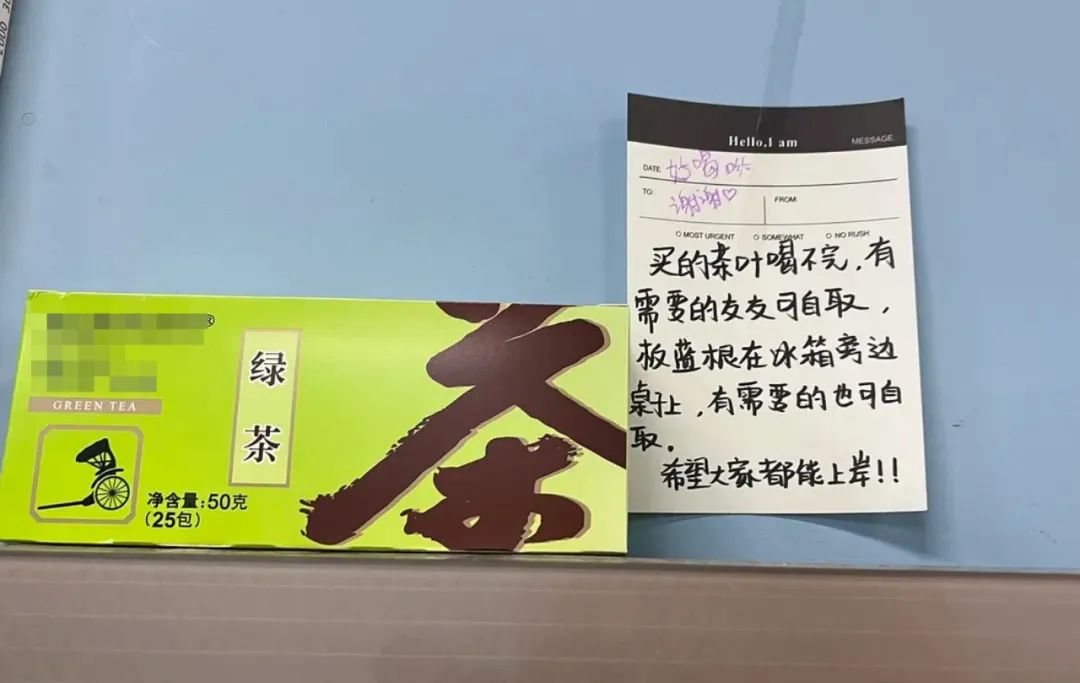 ®
GREEN TEA
绿
茶
净含量:50克
(25包)
茶
Hello,I am
MESSAGE
DATE 好喝
TO: 谢谢♡ FROM:
MOST URGENT SOMEWHAT NO RUSH
买的茶叶喝不完,有
需要的友友可自取,
板蓝根在冰箱旁边
桌上,有需要的也可自
取。
希望大家都能上岸!!